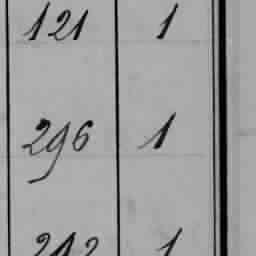 121 1
296 1
242 1